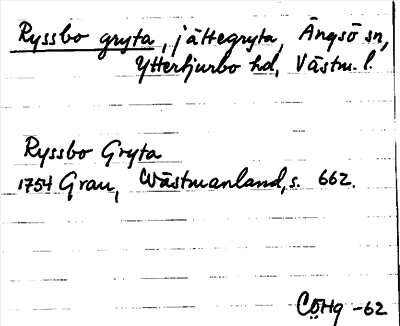 Ryssbo gryta, jättegryta, Ängsö sn,
Yttertjurbo hd, Västm. l.
Ryssbo Gryta
1754 Grau, Wästmanland, s. 662.
CÖHg -62